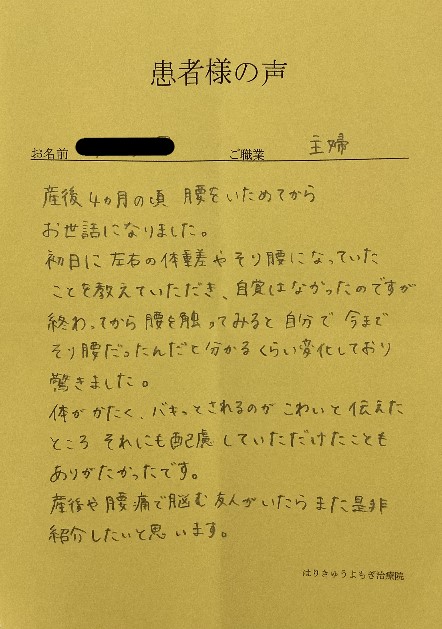 患者様の声
お名前 ご職業 主婦
産後4ヵ月の頃 腰をいためてから
お世話になりました。
初日に左右の体重差やそり腰になっていた
ことを教えていただき、自覚はなかったのですが
終わってから腰を触ってみると自分で今まで
そり腰だったんだと分かるくらい変化しており
驚きました。
体がかたく、バキッとされるのがこわいと伝えた
ところ それにも配慮していただけたことも
ありがたかったです。
産後や腰痛で脳む友人がいたらまた是非
紹介したいと思います。
はりきゅうよもぎ治療院